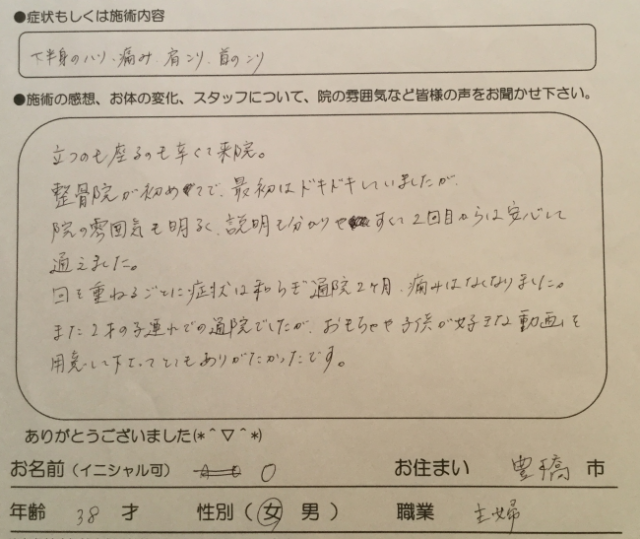 ●症状もしくは施術内容
下半身のハリ、痛み、肩こり、首のこり
●施術の感想、お体の変化、スタッフについて、院の雰囲気など皆様の声をお聞かせ下さい。
立つのも座るのも辛くて来院。
整骨院が初めてで、最初はドキドキしていましたが、
院の雰囲気も明るく、説明も分かりやすくて2回目からは安心して
通えました。
回を重ねるごとに症状は和らぎ通院2ヶ月、痛みはなくなりました。
また2才の子連れでの通院でしたが、おもちゃや子供が好きな動画を
用意して下さってとてもありがたかったです。
ありがとうございました(*^▽^*)
お名前(イニシャル可) O お住まい 豊橋 市
年齢 38 才 性別(女 男) 職業 主婦